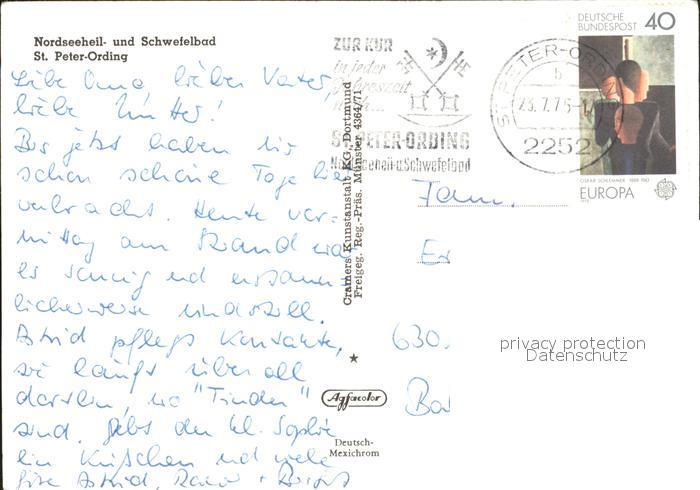 Nordseeheil- und Schwefelbad
St. Peter-Ording
Liebe Oma, lieber Vater,
liebe Mutter!
Bis jetzt haben wir
schon schöne Tage hier
verbracht. Heute vor-
mittag am Strand war
es sonnig und erstaun-
licherweise windstill.
Astrid pflegt Kontakte,
sie läuft überall
dorthin, wo "Kinder"
sind. Gebt der kl. Sophie
ein Küßchen und viele
Astrid,
ZUR KUR
in jeder
Jahreszeit
nach...
ST.PETER-ORDING
Nordseeheil-u.Schwefelbad
ST. PETER-ORDING
b
23.7.75-1
2252
DEUTSCHE
BUNDESPOST 40
OSKAR SCHLEMMER 1888-1943
EUROPA
1975
Cramers Kunstanstalt KG, Dortmund
Freigeg. Reg.-Präs. Münster 4364/71
Agfacolor
Deutsch-
Mexichrom
Fam.
630.
privacy protection
Datenschutz